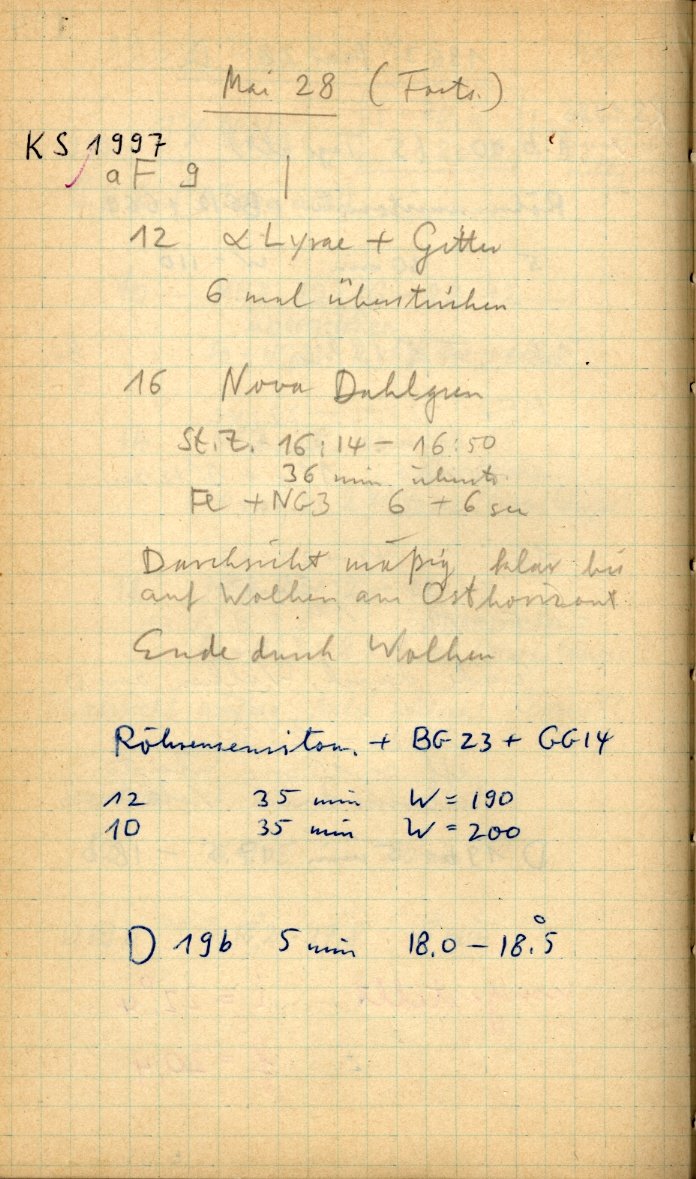 Mai 28 (Forts.)
KS 1997
aF 9 |
12 α Lyrae + Gitter
6 mal überstrichen
16 Nova Dahlgren
St.Z. 16:14 – 16:50
36 min überstr.
Fe + NG3 6 + 6 sec
Durchsicht mäßig, klar bis
auf Wolken am Osthorizont
Ende durch Wolken
Röhrensensitom. + BG 23 + GG 14
12 35 min W = 190
10 35 min W = 200
D 19b 5 min 18.0 – 18.°5